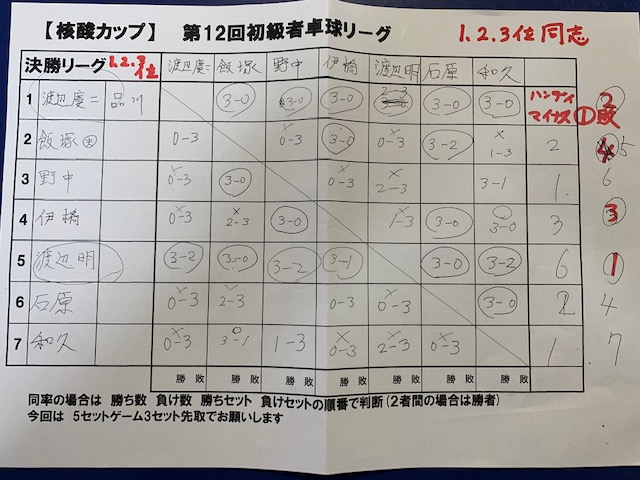 【核酸カップ】 第12回初級者卓球リーグ 1.2.3位同志
決勝リーグ 1.2.3位 渡辺慶二 飯塚 野中 伊橋 渡辺明 石原 和久
1 渡辺慶二 品川 3-0 3-0 3-0 2-3 3-0 3-0 ハンディマイナス① 2
2 飯塚 0-3 0-3 3-0 0-3 3-2 1-3 2 5
3 野中 0-3 3-0 0-3 2-3 3-1 1 6
4 伊橋 0-3 2-3 3-0 1-3 3-0 3-0 3 3
5 渡辺明 3-2 3-0 3-2 3-1 3-0 3-2 6 1
6 石原 0-3 2-3 0-3 0-3 3-0 2 4
7 和久 0-3 3-1 1-3 0-3 2-3 0-3 1 7
勝 敗 勝 敗 勝 敗 勝 敗 勝 敗 勝 敗 勝 敗
同率の場合は 勝ち数 負け数 勝ちセット 負けセットの順番で判断(2者間の場合は勝者)
今回は 5セットゲーム3セット先取でお願いします